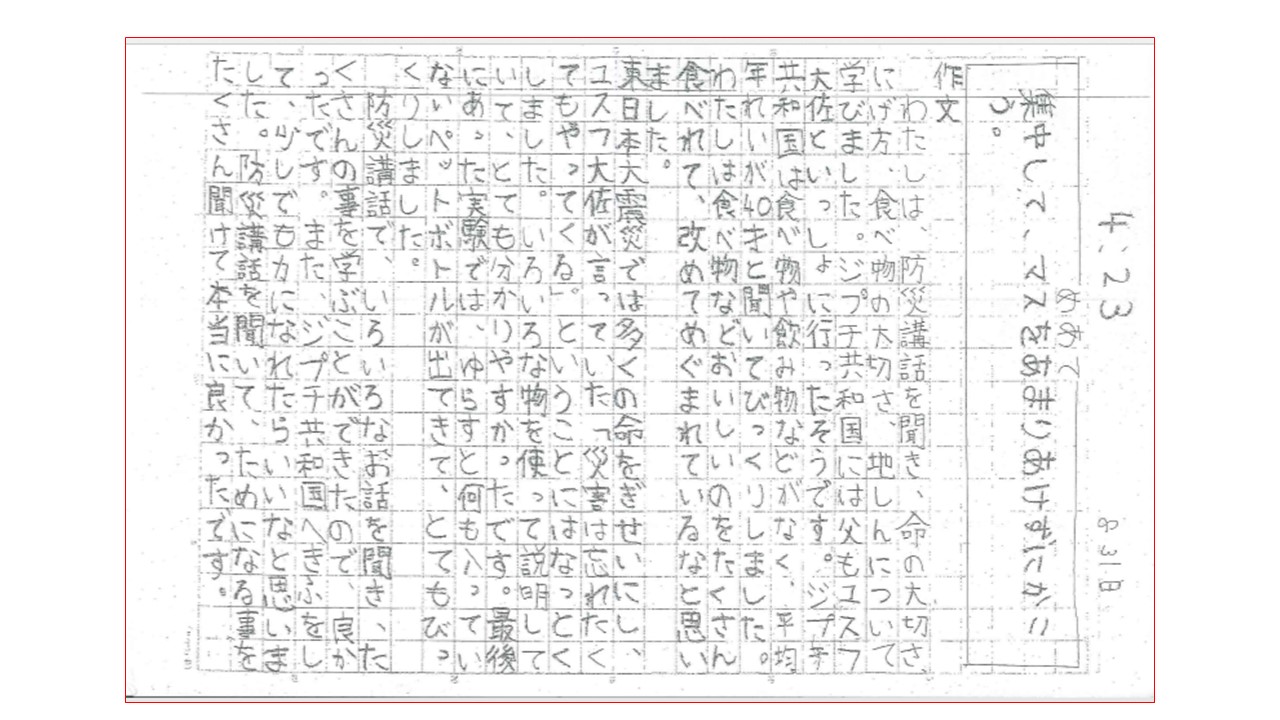 4:23
8.31日
めあて
集中して、マスをあまりあけずにかこ
う。
作文
わたしは、防災講話を聞き、命の大切さ、
にげ方、食べ物の大切さ、地しんについて
学びました。ジプチ共和国には父もユスフ
大佐といっしょに行ったそうです。ジプチ
共和国は食べ物や飲み物などがなく、平均
年れいが40才と聞いてびっくりしました。
わたしは食べ物などおいしいのをたくさん
食べれて、改めてめぐまれているなと思い
ました。
東日本大震災では多くの命をぎせいにし、
ユスフ大佐が言っていた「災害は忘れたく
てもやってくる」。ということにはなっとく
しました。いろいろな物を使って説明して
いて、とても分かりやすかったです。最後
にあった実験では、ゆらすと何も入ってい
ないペットボトルが出てきて、とてもびっ
くりしました。
防災講話で、いろいろなお話を聞き、た
くさんの事を学ぶことができたので、良か
ったです。また、ジプチ共和国へきふをし
て、少しでも力になれたらいいなと思いま
した。防災講話を聞いて、ためになる事を
たくさん聞けて本当に良かったです。